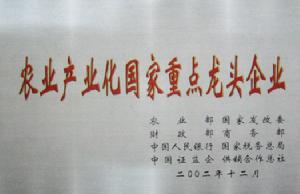 农业产业化国家重点龙头企业
农业部 国家发改委
财政部 商务部
中国人民银行 国家税务总局
中国证监会 供销合作总社
二00二年十二月